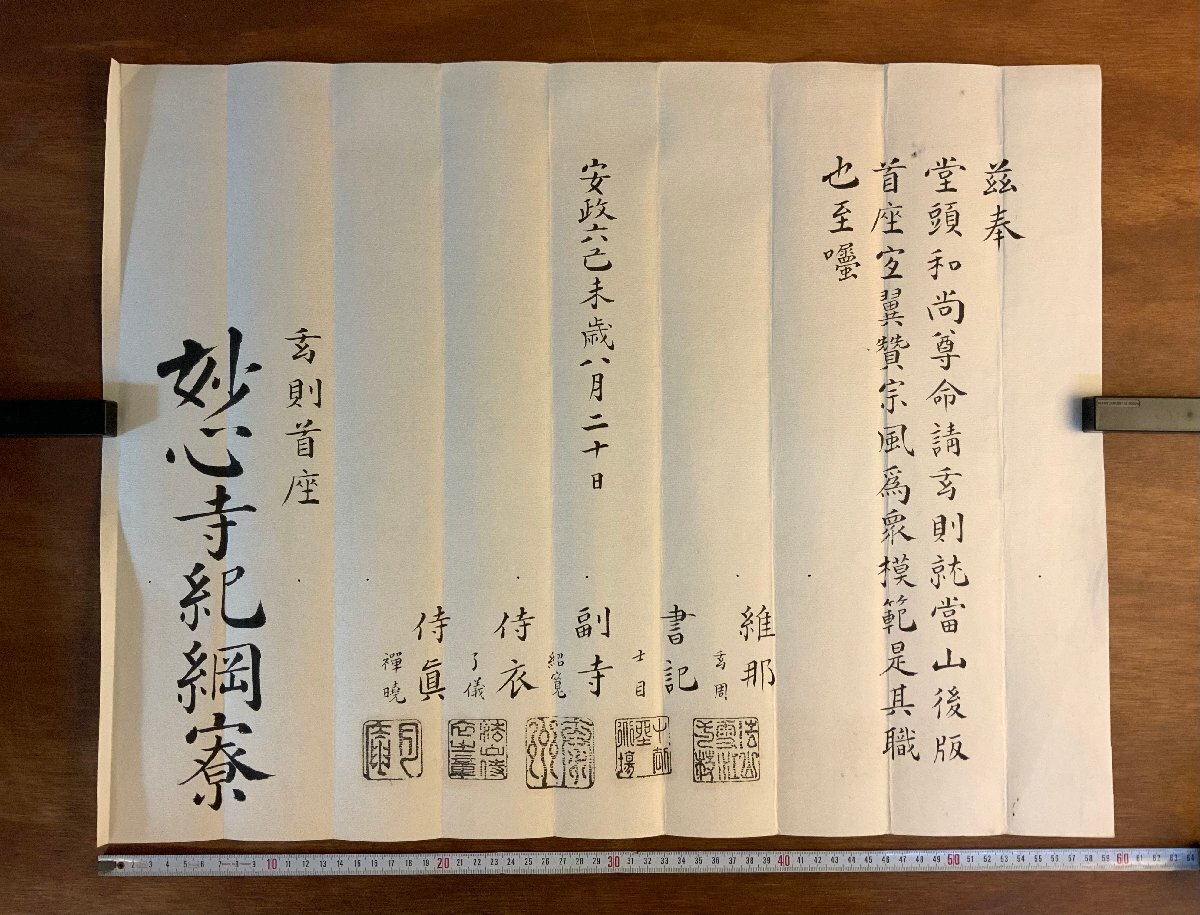 茲奉
堂頭和尚尊命請玄則就當山後版
首座宜翼贊宗風為衆模範是其職
也至囑
維那
玄周
書記
士目
副寺
紹寬
侍衣
了儀
侍眞
禪曉
安政六己未歳八月二十日
玄則首座
妙心寺紀綱寮